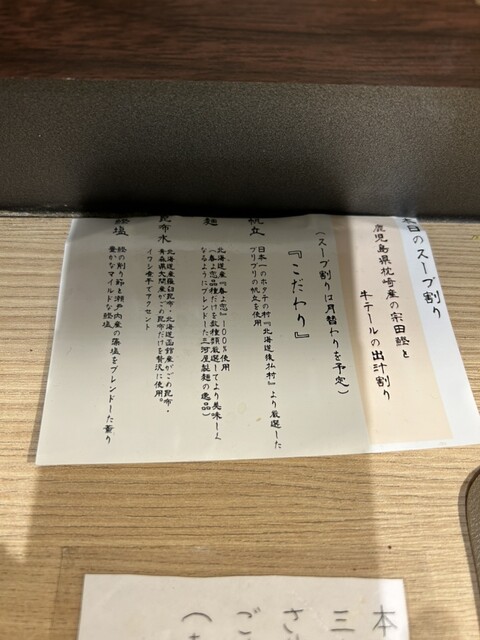 本日のスープ割り
鹿児島県枕崎産の宗田鰹と
牛テールの出汁割り
(スープ割りは月替わりを予定)
『こだわり』
帆立
日本一のホタテの村『北海道猿払村』より厳選した
プリプリの帆立を使用
麺
北海道産『春よ恋』100%使用
(春よ恋品種だけを数種類厳選してより美味しく
なるようにブレンドした三河屋製麺の逸品)
昆布水
北海道産羅臼昆布・北海道函館産がごめ昆布・
青森県大間産がごめ昆布だけを贅沢に使用。
イワシ煮干でアクセント
鰹塩
鰹の削り節と瀬戸内産の藻塩をブレンドした薫り
豊かなマイルドな鰹塩
本
三
さ
ご
(